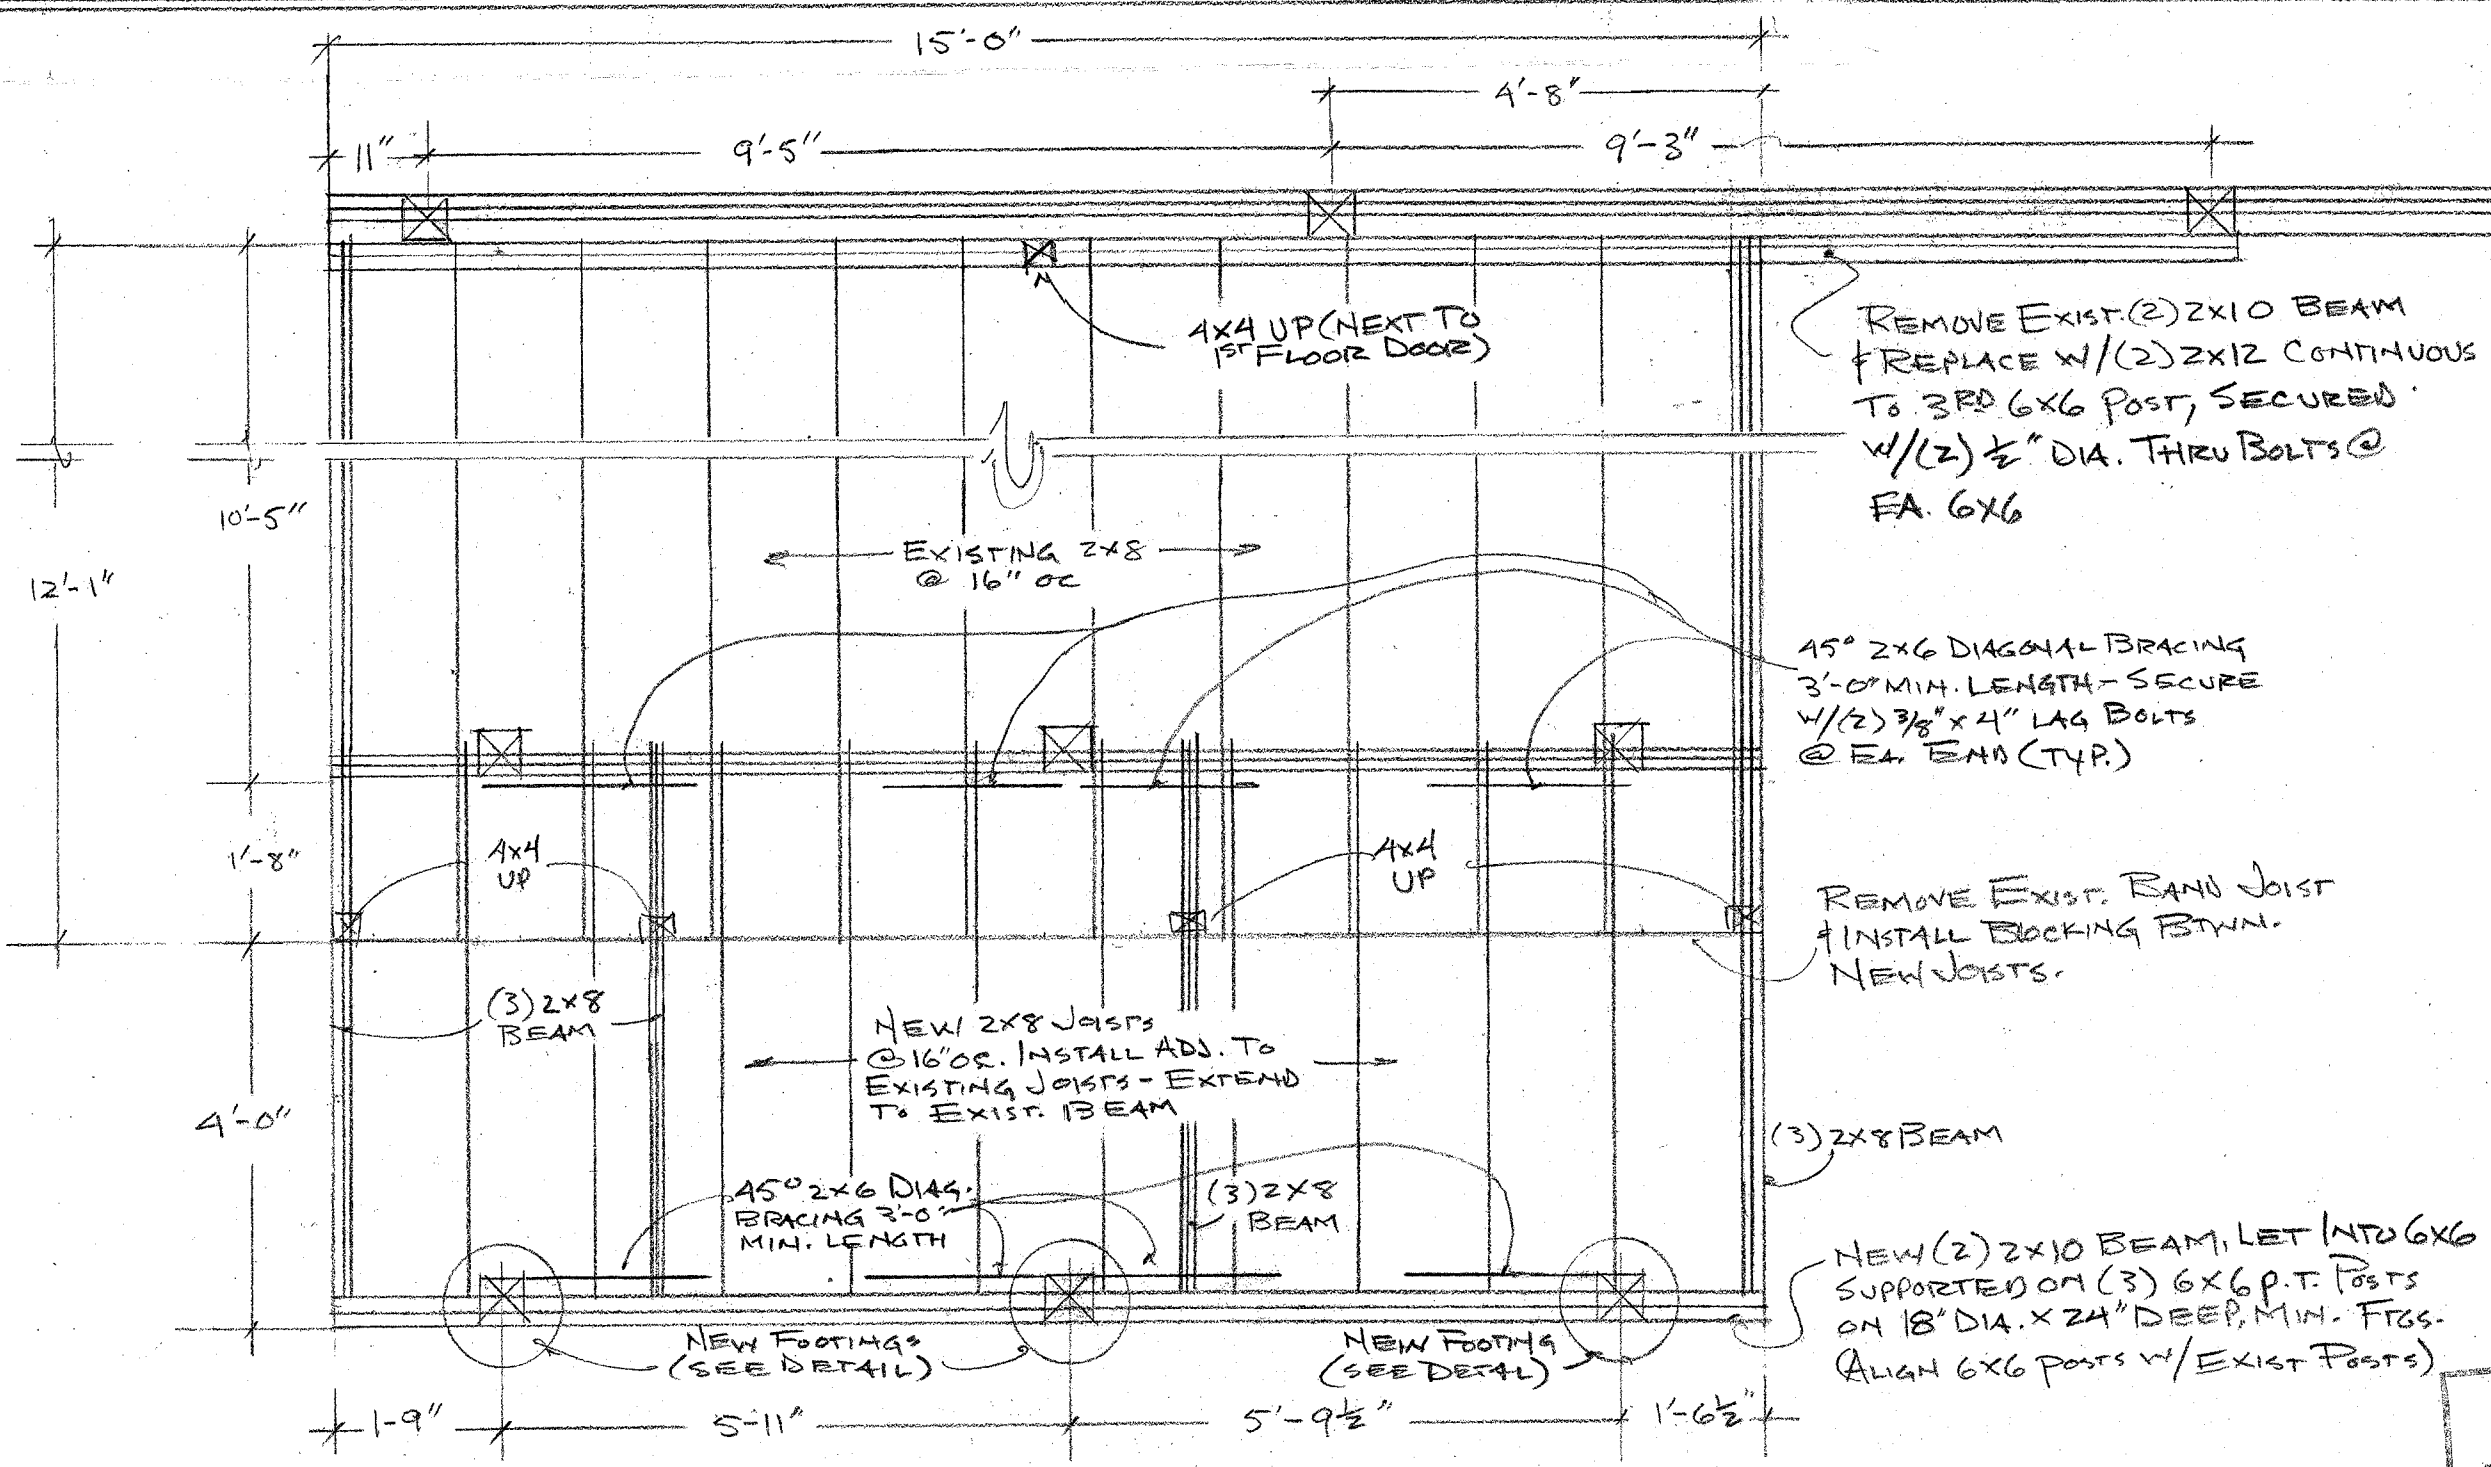 15'-0"
4'-8"
11"
9'-5"
9'-3"
4x4 UP (NEXT TO
1ST FLOOR DOOR)
REMOVE EXIST. (2) 2x10 BEAM
& REPLACE W/(2) 2x12 CONTINUOUS
TO 3RD 6x6 POST, SECURED
W/(2) ½" DIA. THRU BOLTS @
EA. 6x6
10'-5"
12'-1"
EXISTING 2x8
@ 16" OC
45° 2x6 DIAGONAL BRACING
3'-0" MIN. LENGTH - SECURE
W/(2) 3/8" x 4" LAG BOLTS
@ EA. END (TYP.)
1'-8"
4x4
UP
4x4
UP
REMOVE EXIST. BAND JOIST
& INSTALL BLOCKING BTWN.
NEW JOISTS.
(3) 2x8
BEAM
NEW 2x8 JOISTS
@ 16" OC. INSTALL ADJ. TO
EXISTING JOISTS - EXTEND
TO EXIST. BEAM
4'-0"
(3) 2x8 BEAM
45° 2x6 DIAG.
BRACING 3'-0"
MIN. LENGTH
(3) 2x8
BEAM
NEW (2) 2x10 BEAM, LET INTO 6x6
SUPPORTED ON (3) 6x6 P.T. POSTS
ON 18" DIA. x 24" DEEP, MIN. FTGS.
(ALIGN 6x6 POSTS W/ EXIST POSTS)
NEW FOOTINGS
(SEE DETAIL)
NEW FOOTING
(SEE DETAL)
1-9"
5-11"
5'-9½"
1'-6½"